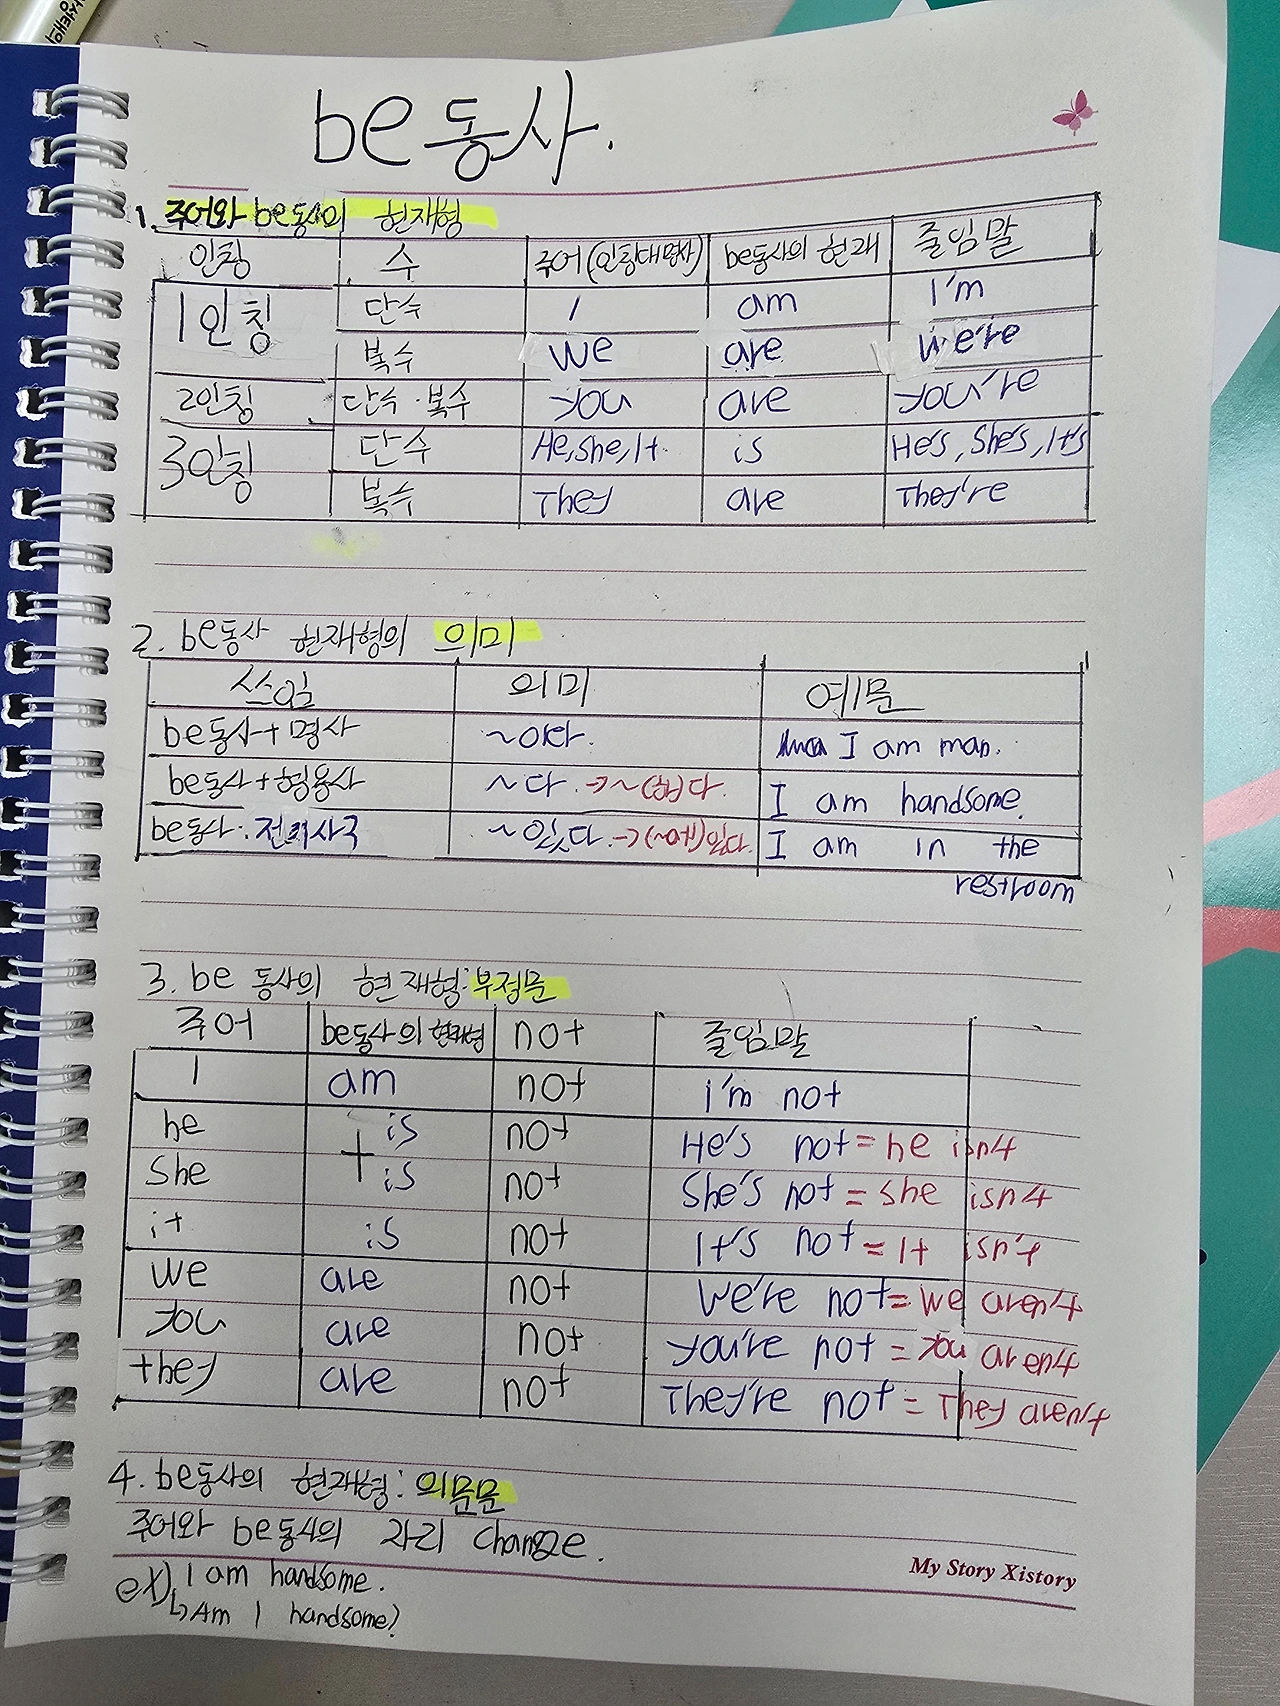 be동사.
1. 주어와 be동사의 현재형
인칭 수 주어(인칭대명사) be동사의 현재 줄임말
1인칭 단수 I am I'm
복수 we are we're
2인칭 단수·복수 you are you're
3인칭 단수 He, she, It is He's, She's, It's
복수 They are They're
2. be동사 현재형의 의미
쓰임 의미 예문
be동사+명사 ~이다. I am man.
be동사+형용사 ~다. → ~(하)다. I am handsome.
be동사. 전치사구 ~있다. → (~에)있다. I am in the
restroom
3. be 동사의 현재형: 부정문
주어 be동사의 현재형 not 줄임말
I am not i'm not
he + is not He's not = he isn't
She is not She's not = she isn't
it is not It's not = It isn't
we are not We're not = we aren't
you are not you're not = you aren't
they are not They're not = They aren't
4. be동사의 현재형: 의문문
주어와 be동사의 자리 change.
ex) I am handsome.
↳ Am I handsome?
My Story Xistory